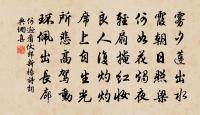 霧夕蓮出水
霞朝日照梁
何如花燭夜
輕扇掩紅妝
良人復灼灼
席上自生光
所悲高駕動
環珮出長廊
何遜看伏郎新婚詩詞
典網集